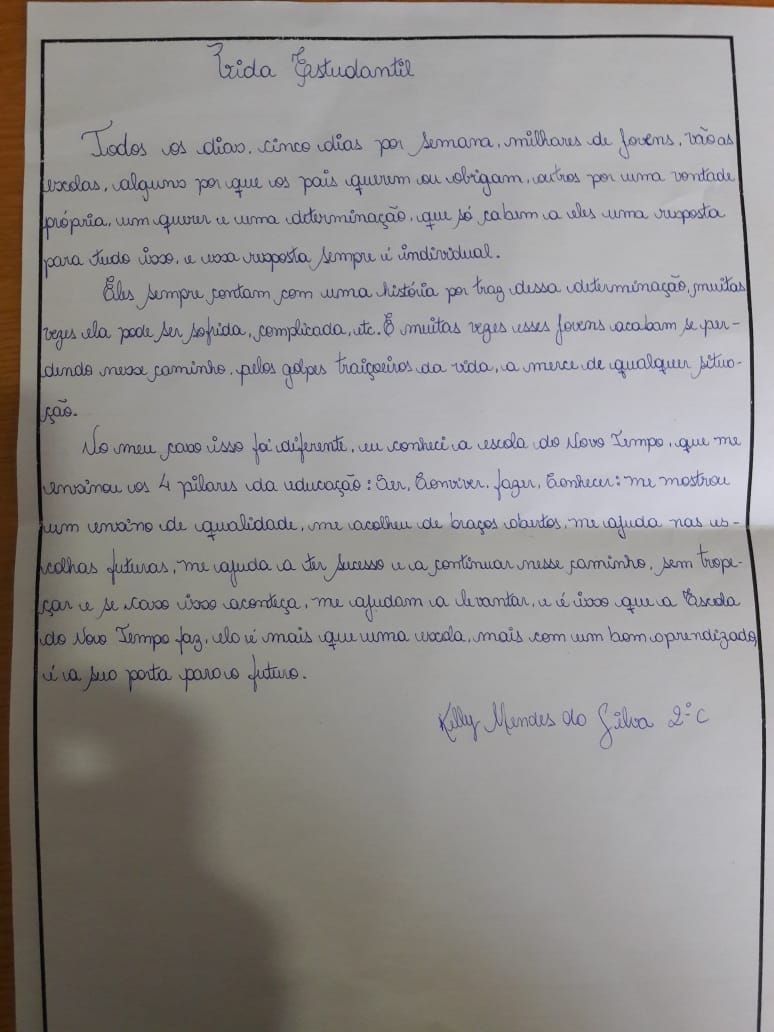 Vida Estudantil
Todos os dias, cinco dias por semana, milhares de jovens, vão as
escolas, alguns por que os pais querem ou obrigam, outros por uma vontade
própria, um querer e uma determinação, que só cabem a eles uma resposta
para tudo isso, e essa resposta sempre é individual.
Eles sempre contam com uma história por traz dessa determinação, muitas
vezes ela pode ser sofrida, complicada, etc. E muitas vezes esses jovens acabam se per-
dendo nesse caminho, pelos golpes traiçoeiros da vida, a merce de qualquer situa-
ção.
No meu caso isso foi diferente, eu conheci a escola do Novo Tempo, que me
ensinou os 4 pilares da educação: Ser, Conviver, fazer, Conhecer: me mostrou
um ensino de qualidade, me acolheu de braços abertos, me ajuda nas es-
colhas futuras, me ajuda a ter sucesso e a continuar nesse caminho, sem trope-
çar e se caso isso aconteça, me ajudam a levantar, e é isso que a Escola
do Novo Tempo faz, ela é mais que uma escola, mais com um bom aprendizado,
é a sua porta para o futuro.
Killy Mendes da Silva 2°C